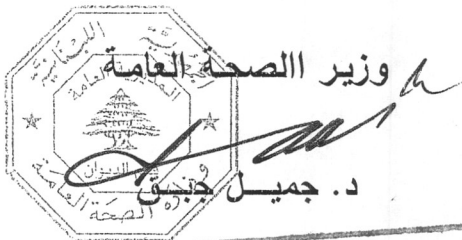 وزير االصحة العامة
د. جميـل جبـق
الجمهورية اللبنانية
وزارة الصحة العامة
الديوان